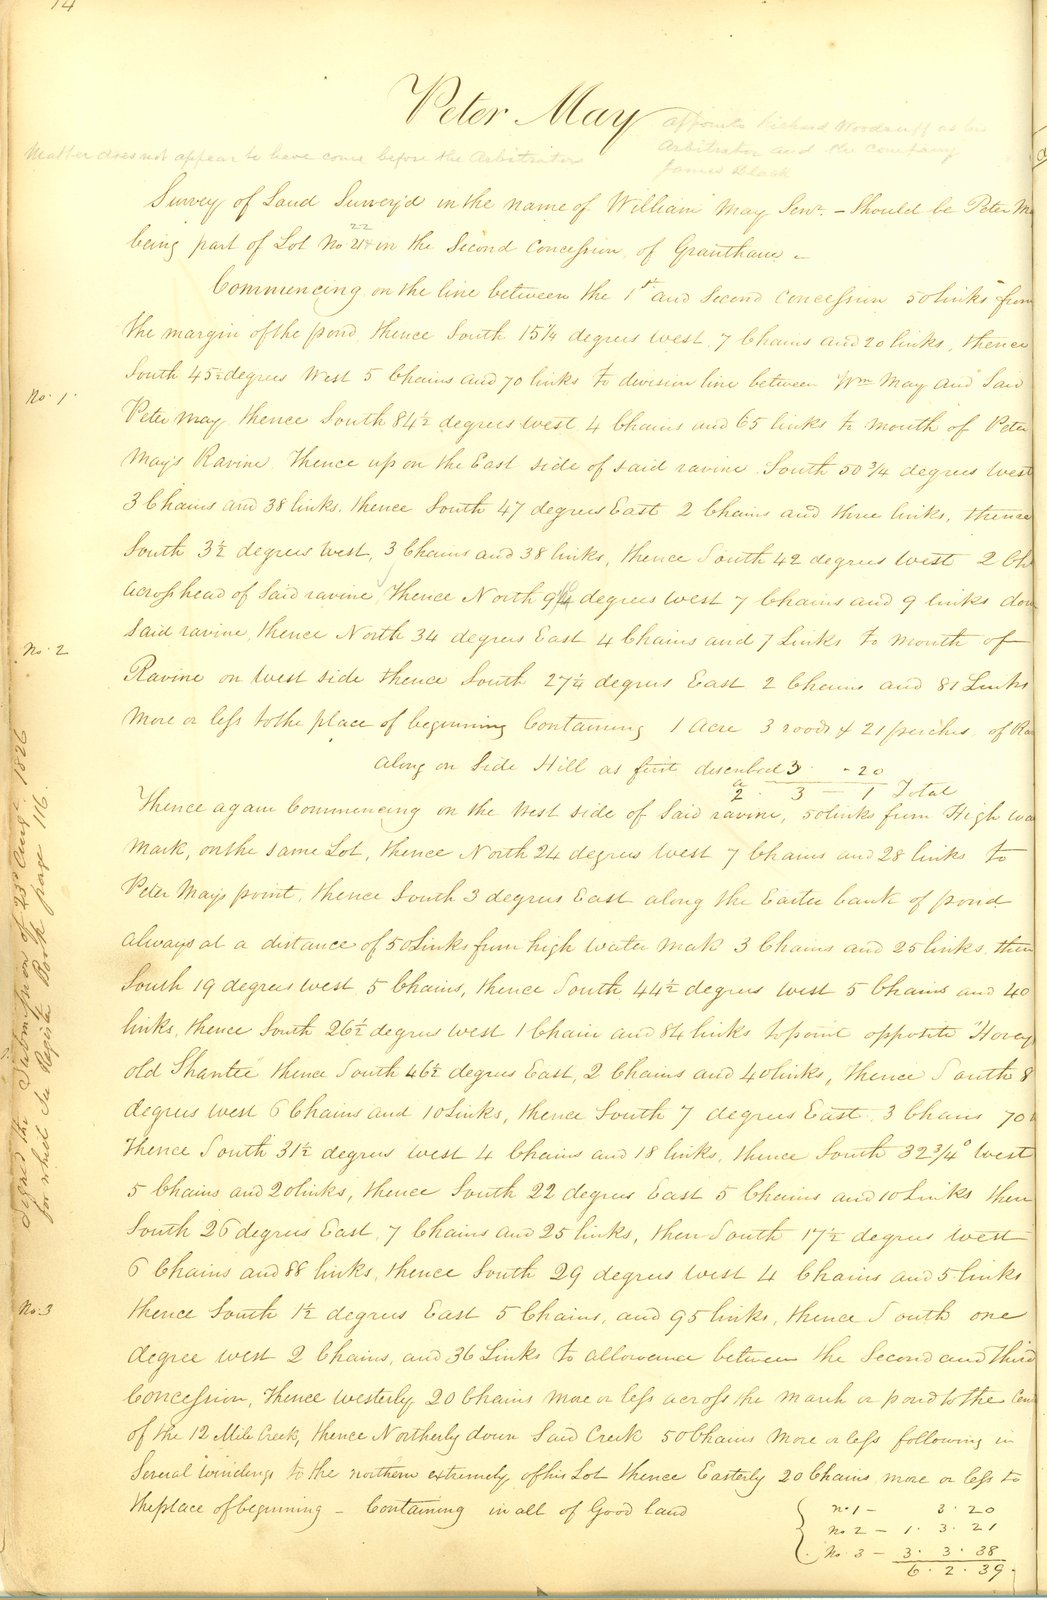 14
Peter May
appoints Richard Woodruff as his
Arbitrator and the Company
James Black
Matter does not appear to have come before the Arbitrators
Survey of Land Survey'd in the name of William May Senr. – Should be Peter Ma
being part of Lot No 21 22 in the Second Concession, of Grantham –
Commencing on the line between the 1st and Second Concession 50 links from
the margin of the pond, thence South 15 1/4 degrees west 7 Chains and 20 links, thence
South 45 1/2 degrees West 5 Chains and 70 links to division line between Wm May and Said
No. 1.
Peter May, thence South 84 1/2 degrees west 4 Chains and 65 links to mouth of Peter
Mays Ravine. Thence up on the East side of said ravine South 50 3/4 degrees West
3 Chains and 38 links, thence South 47 degrees East 2 Chains and three links, thence
South 3 1/2 degrees West, 3 Chains and 38 links, thence South 42 degrees west 2 Ch
across head of Said ravine, Thence North 9 1/4 degrees west 7 Chains and 9 links down
Said ravine, thence North 34 degrees East 4 Chains and 7 Links to mouth of
No. 2
Ravine on west side thence South 27 1/4 degrees East 2 Chains and 81 Links
More or less to the place of beginning Containing 1 Acre 3 roods & 21 perches of Ra
along on Side Hill as first described 3 . – 20
a 2 . 3 – 1 Total
Thence again Commencing on the West side of Said ravine, 50 links from High wa
Mark, on the same Lot, thence North 24 degrees west 7 Chains and 28 links to
Peter Mays point, thence South 3 degrees East along the Easter bank of pond
always at a distance of 50 Links from high water mak 3 Chains and 25 links, then
South 19 degrees west 5 Chains, thence South 44 1/2 degrees west 5 Chains and 40
links, thence South 26 1/2 degrees west 1 Chain and 84 links to point opposite Hovey
old Shantee thence South 46 1/2 degrees East, 2 Chains and 40 links, thence South 8
degrees west 6 Chains and 10 Links, thence South 7 degrees East 3 Chains 70
Thence South 31 1/2 degrees west 4 Chains and 18 links, thence South 32 3/4° West
5 Chains and 20 links, thence South 22 degrees East 5 Chains and 10 Links then
South 26 degrees East, 7 Chains and 25 links, then South 17 1/2 degrees west
6 Chains and 88 links, thence South 29 degrees West 4 Chains and 5 links
No. 3
thence South 1 1/2 degrees East 5 Chains, and 95 links, thence South one
degree west 2 Chains, and 36 Links to allowance between the Second and Third
Concession, Thence westerly 20 Chains more or less across the marsh or pond to the Cen
of the 12 Mile Creek, thence Northerly down Said Creek 50 Chains More or less following in
Several windings to the northern extremely of his Lot thence Easterly 20 Chains more or less to
the place of beginning – Containing in all of Good land
No 1 – 3 . 20
No 2 – 1 . 3 . 21
No. 3 – 3 . 3 . 38
6 . 2 . 39.
Signed the Submission of 23d Augt. 1826
for which See Register Book page 116.